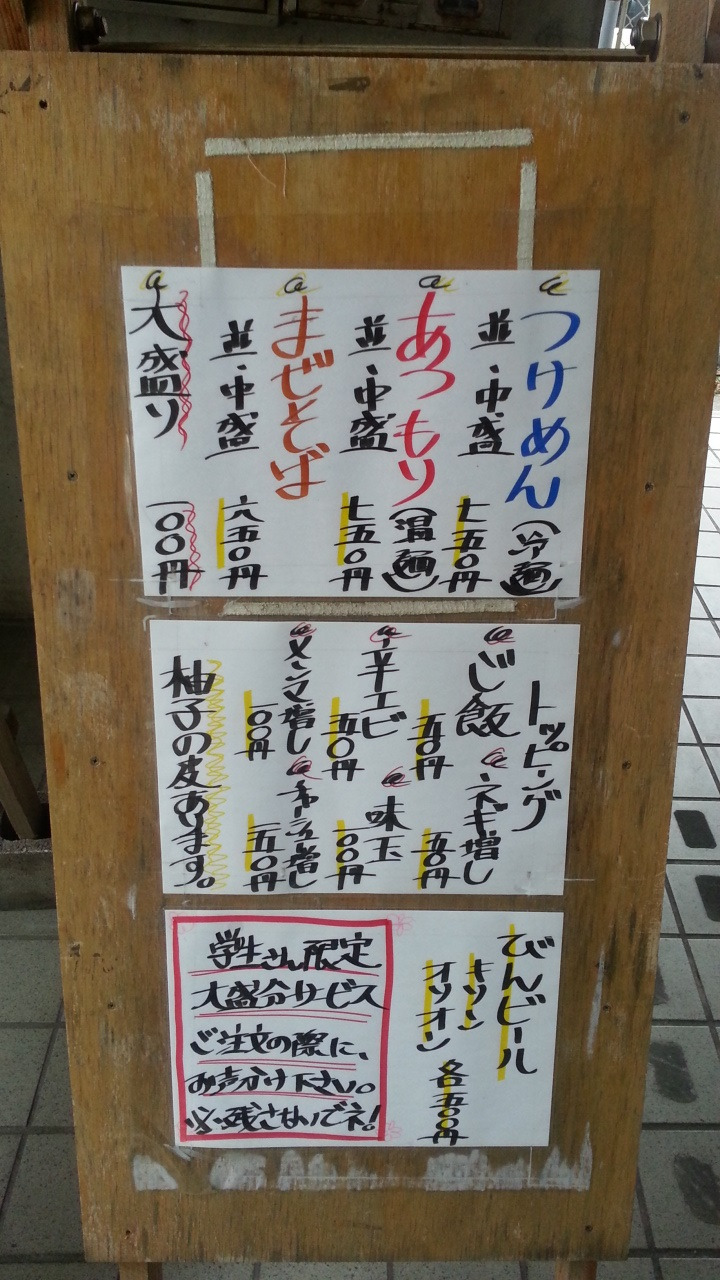 つけめん（冷麺）
並・中盛 七五〇円
あつもり（温麺）
並・中盛 七五〇円
まぜそば
並・中盛 六五〇円
大盛り 一〇〇円
トッピング
じ飯 五〇円
ネギ増し 五〇円
辛エビ 五〇円
味玉 一〇〇円
メンマ増し 一〇〇円
チャーシュー増し 一五〇円
柚子の皮あります。
びんビール
キリン
オリオン
各五〇〇円
学生さん限定
大盛分サービス
ご注文の際に、
お声分け下さい。
必残さないでネ!